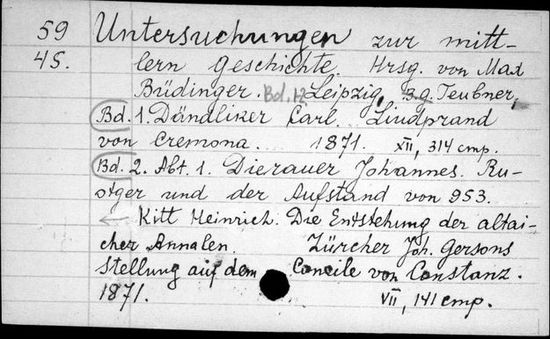 59 Untersuchungen zur mitt-
45. lern Geschichte. Hrsg. von Max
Büdinger. Bd. 1.2 Leipzig, B.G. Teubner,
Bd. 1. Dändliker Carl. Liudprand
von Cremona. 1871. XII, 314 стр.
Bd. 2. Abt. 1. Dierauer Johannes. Ru-
otger und der Aufstand von 953.
← Kitt Heinrich. Die Entstehung der altai-
cher Annalen. Zürcher Joh. Gersons
Stellung auf dem Concile von Constanz.
1871. VII, 141 стр.